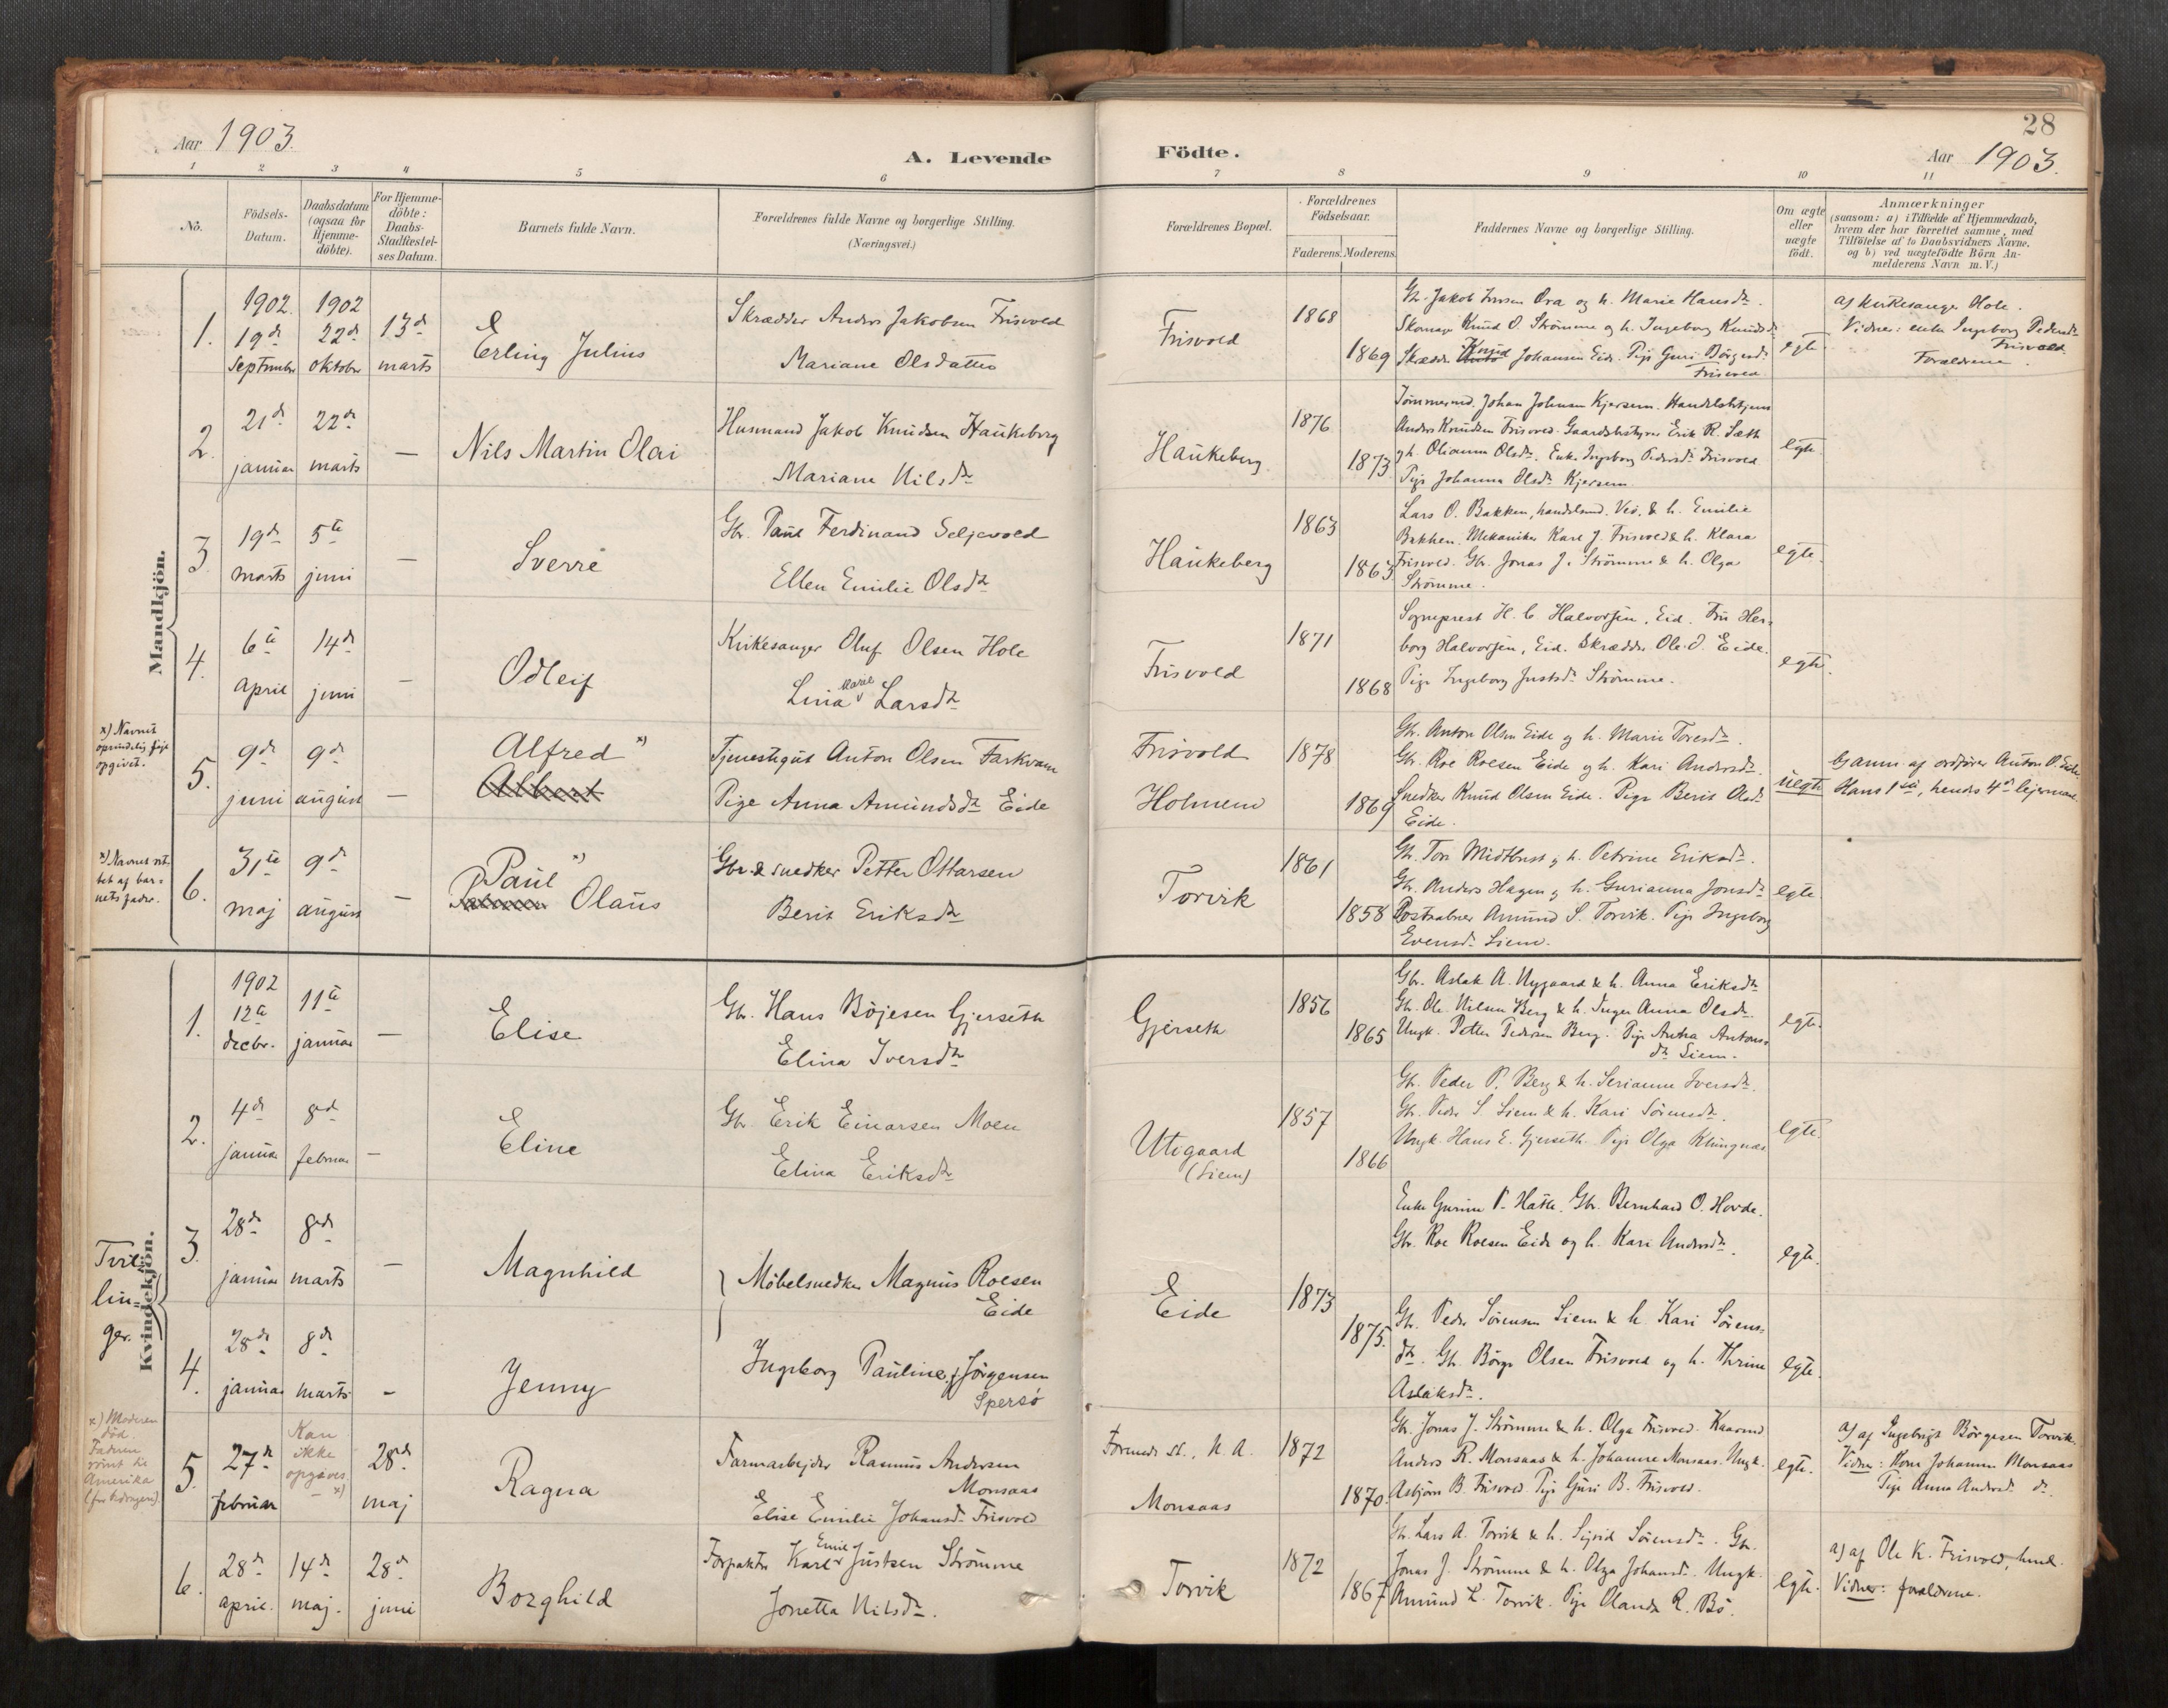 28
Aar 1903.
A. Levende
Födte.
Aar 1903.
1 2 3 4 5 6 7 8 9 10 11
No.
Födsels-
Datum.
Daabsdatum
(ogsaa för
Hjemme-
döbte).
For Hjemme-
döbte:
Daabs-
Stadfæstel-
ses Datum.
Barnets fulde Navn.
Forældrenes fulde Navne og borgerlige Stilling.
(Næringsvei.)
Forældrenes Bopæl.
Forældrenes
Födselsaar.
Faderens. Moderens.
Faddernes Navne og borgerlige Stilling.
Om ægte
eller
uægte
født.
Anmærkninger
(saasom: a) i Tilfælde af Hjemmedaab,
hvem der har forrettet samme, med
Tilföielse af to Daabsvidners Navne,
og b) ved uægtefödte Börn An-
melderens Navn m. V.)
Mandkjön.
1.
1902
19de
September
1902
22de
oktober
13de
marts
Erling Julius
Skrædder Anders Jakobsen Frisvold
Mariane Olsdatter
Frisvold
1868
1869
Gbr. Jakob Iversen Øra og h. Marie Hansdr.
Skomager Knud O. Strømme og h. Ingeborg Knudsdr.
Skrædder Knud Johansen Eide. Pige Guri Børgesdr.
Frisvold
egte
a) kirkesanger Hole.
Vidner: enke Ingeborg Pedersdr.
Frisvold
Forældrene.
2.
21de
januar
22de
marts
—
Nils Martin Olai
Husmand Jakob Knudsen Haukeberg
Mariane Nilsdr.
Haukeberg
1876
1873
Tømmermd. Johan Johnsen Kjersem. Handelsbetjent
Anders Knudsen Frisvold. Gaardsbestyrer Erik R. Sæth
og h. Olianna Olsdr. Enke Ingeborg Pedersdr. Frisvold
Pige Johanna Olsdr. Kjersem.
egte
3
19de
marts
5te
juni
—
Sverre
Gbr. Paul Ferdinand Seljevold
Ellen Emilie Olsdr.
Haukeberg
1863
1863
Lars O. Bakken, handelsmd. Veø, & h. Emilie
Bakken. Mekaniker Karl J. Frisvold & h. Klara
Frisvold. Gbr. Jonas J. Strømme & h. Olga
Strømme.
egte.
4.
6te
april
14de
juni
—
Odleif
Kirkesanger Oluf Olsen Hole
Lina Marie Larsdr.
Frisvold
1871
1868
Sogneprest H. C. Halvorsen, Eid. Fru Her-
borg Halvorsen, Eid. Skrædder Ole O. Eide.
Pige Ingeborg Justsdr. Strømme.
egte.
x) Navnet
oprindelig feil
opgivet.
5.
9de
juni
9de
august
—
Alfred x)
Albert
Tjenestegut Anton Olsen Farkvam
Pige Anna Amundsdr. Eide
Frisvold
Holmem
1878
1869
Gbr. Anton Olsen Eide og h. Marie Toresdr.
Gbr. Roe Roesen Eide og h. Kari Andersdr.
Snedker Knud Olsen Eide. Pige Berit Olsdr.
Eide.
uegte
b) anm. af ordfører Anton O. Eide.
Hans 1ste, hendes 4de lejermaal.
x) Navnet ret-
tet af bar-
nets fader.
6.
31te
maj
9de
august
—
Paul x)
Olaus
Gbr. & snedker Petter Ottarsen
Berit Eriksdr.
Torvik
1861
1858
Gbr. Tore Midthust og h. Petrine Eriksdr.
Gbr. Anders Hagen og h. Gurianna Jonsdr.
Postaabner Amund S. Torvik. Pige Ingeborg
Evensdr. Siem.
egte.
Kvindekjön.
1.
1902
12te
decbr.
11te
januar
—
Elise
Gbr. Hans Bøjesen Gjerseth
Elina Iversdr.
Gjerseth
1856
1865
Gbr. Aslak A. Nygaard & h. Anna Eriksdr.
Gbr. Ole Nilsen Berg & h. Inger Anna Olsdr.
Ungk. Petter Pedersen Berg. Pige Antha Antons-
dr. Siem.
egte.
2.
4de
januar
8de
februar
—
Eline
Gbr. Erik Einarsen Moen
Elina Eriksdr.
Utigaard
(Siem)
1857
1866
Gbr. Peder P. Berg & h. Serianna Iversdr.
Gbr. Peder S. Siem & h. Kari Sørensdr.
Ungk. Hans E. Gjerseth. Pige Olga Klungnæs
egte.
Tvil-
lin-
ger.
3.
28de
januar
8de
marts
—
Magnhild
Møbelsnedker Magnus Roesen
Eide
Eide
1873
1875.
Enke Gurine P. Hatle. Gbr. Bernhard O. Hovde.
Gbr. Roe Roesen Eide og h. Kari Andersdr.
egte.
4.
28de
januar
8de
marts
-
Jenny
Ingeborg Pauline Jørgensen
Spersø
Gbr. Peder Sørensen Siem & h. Kari Sørens-
dr. Gbr. Børge Olsen Frisvold og h. Thrine
Aslaksdr.
egte.
x) Moderen
død.
Faderen
rømt til
Amerika
5.
27de
februar
Kan
ikke
opgives.
x)
28de
maj
Ragna
Farmarbejder Rasmus Andersen
Monsaas
Elise Emilie Johansdr. Frisvold
N. A.
Monsaas
1872
1870.
Gbr. Jonas J. Strømme & h. Olga Frisvold. Kaarmd.
Anders R. Monsaas & h. Johanne Monsaas. Ungk.
Asbjørn B. Frisvold. Pige Guri B. Frisvold.
egte.
a) af Ingebrigt Børgesen Torvik.
Vidner: Kone Johanne Monsaas
Pige Anna Andersdr. do.
6.
28de
april.
14de
maj.
28de
juni
Borghild
Forpakter Karl Emil Justsen Strømme
Jonetta Nilsdr.
Torvik
1872
1867
Gbr. Lars A. Torvik & h. Sigrid Sørensdr. Gbr.
Jonas J. Strømme & h. Olga Johansdr. Ungk.
Amund L. Torvik. Pige Olanda R. Bø.
egte.
a) af Ole K. Frisvold, husmd.
Vidner: forældrene.